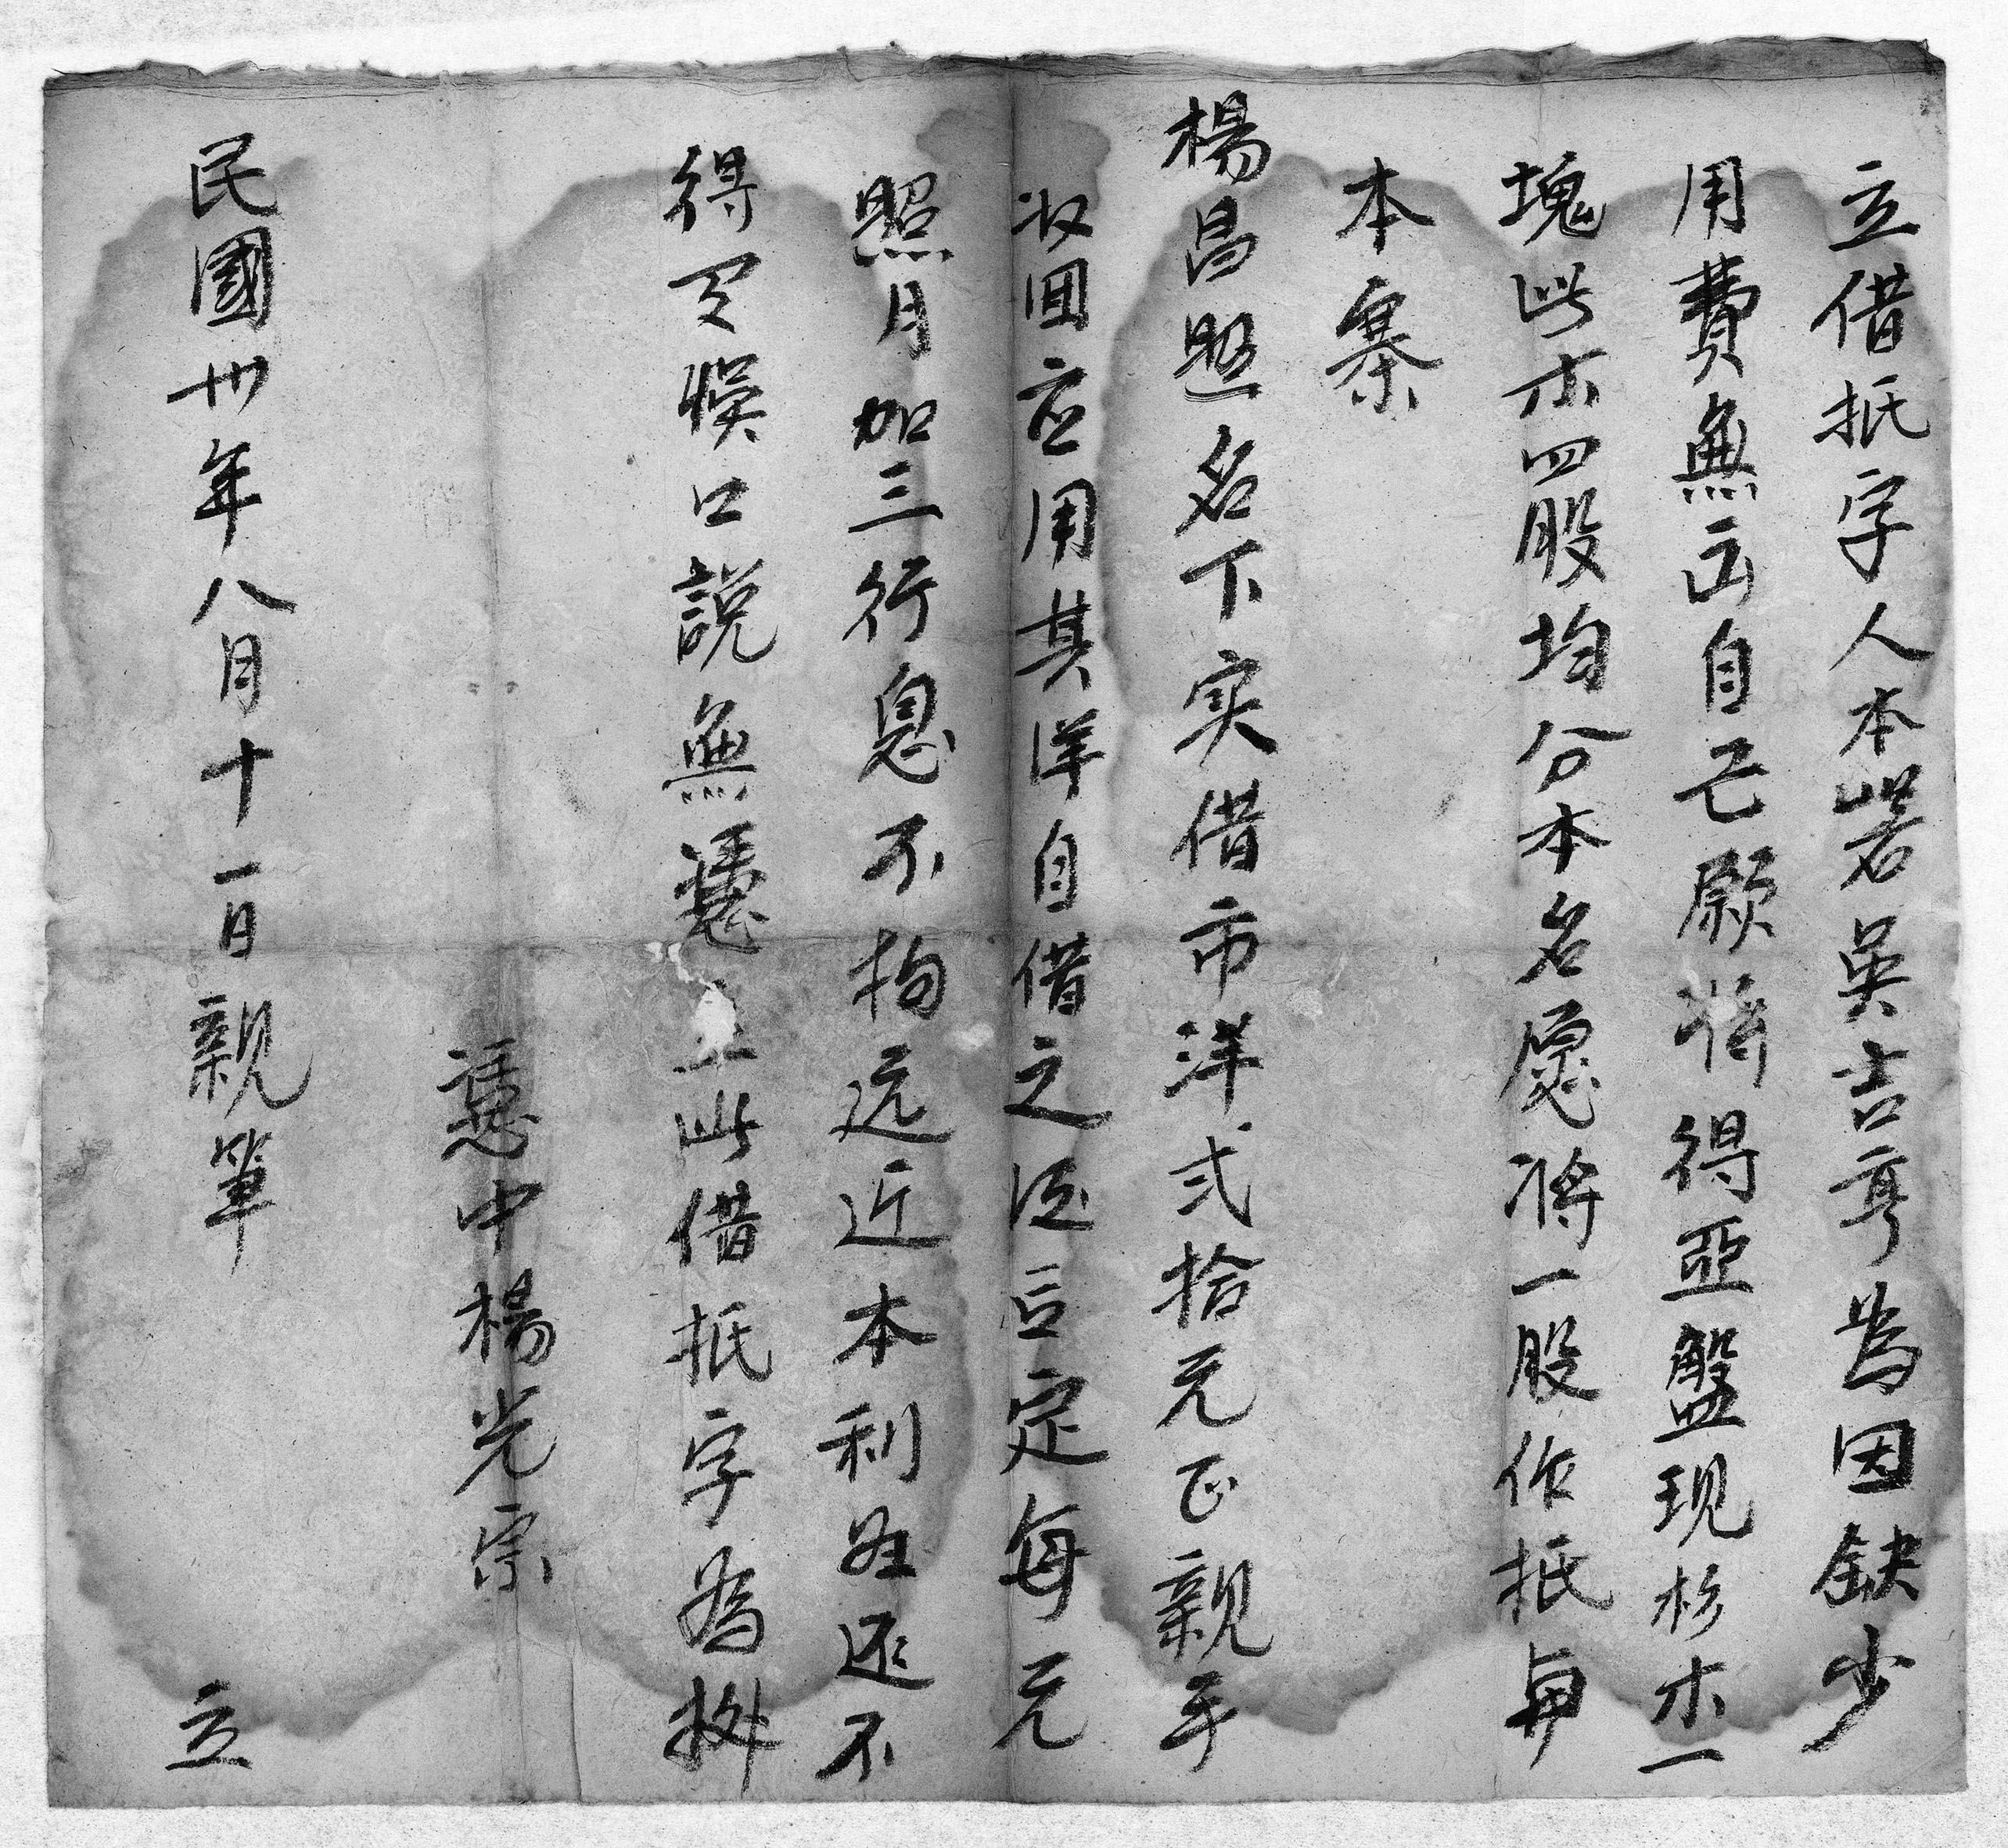 立借抵字人本岩吳吉亨為因缺少
用費無出自己愿將得亞盤现杉木一
塊此木四股均分本名愿將一股作抵與
本寨
楊昌照名下实借市洋弍拾元正親手
收囬应用其洋自借之後言定每元
照月加三行息不拘远近本利為还不
得有悞口説無憑立此借抵字為據
憑中楊光宗
民國卅年八月十一日親筆 立